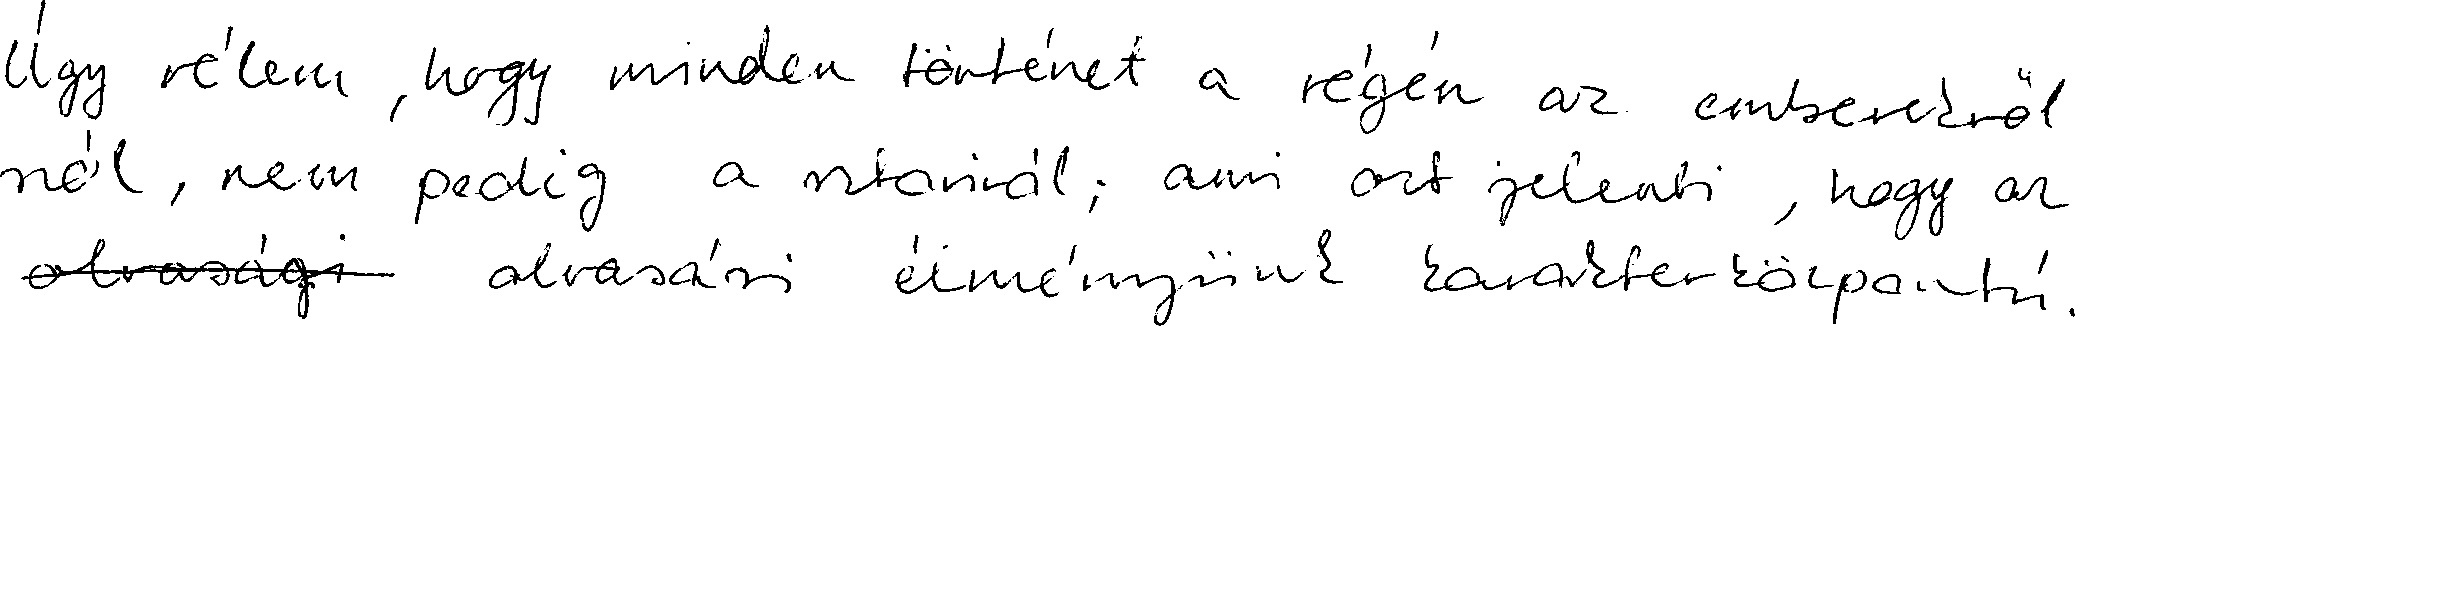 Úgy vélem, hogy minden történet a végén az emberekről
szól, nem pedig a sztoriról; ami azt jelenti, hogy az
olvasági olvasási élményünk karakterközpontú.